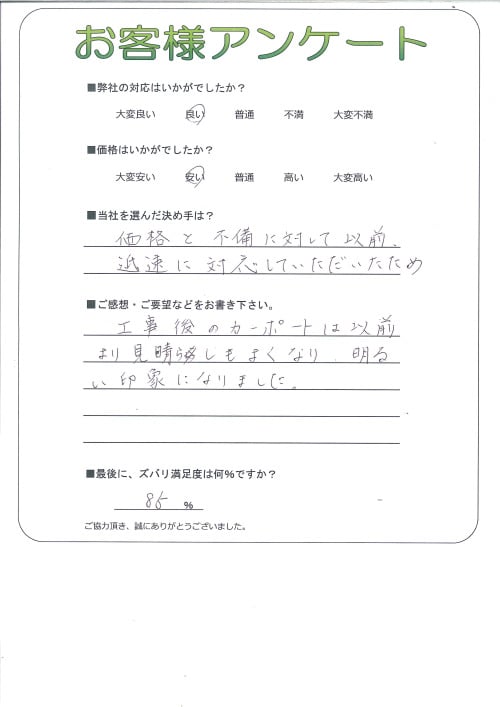 お客様アンケート
■弊社の対応はいかがでしたか？
大変良い 良い 普通 不満 大変不満
■価格はいかがでしたか？
大変安い 安い 普通 高い 大変高い
■当社を選んだ決め手は？
価格と不備に対して以前、
迅速に対応していただいたため
■ご感想・ご要望などをお書き下さい。
工事後のカーポートは以前
より見晴らしもよくなり 明る
い印象になりました。
■最後に、ズバリ満足度は何％ですか？
85 ％
ご協力頂き、誠にありがとうございました。